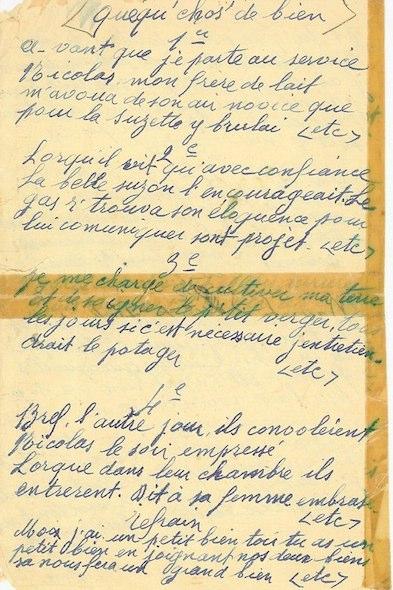 (Quéqu'chos' de bien)
1e
a-vant que je parte au service
Nicolas mon frère de lait
m'avoua de son air novice que
pour la Suzette y brulai <etc>
2e
Lorqu'il vit qu'avec confiance
La belle suzon l'encourageait. Le
gas r'trouva son éloquence pour
lui comuniquer sont projet. <etc>
3e
je me charge de cultiver ma terre
et de soigner le p'tit verger, tous
les jours si c'est nécessaire j'entretien-
drait le potager
<etc>
4e
Bref. l'autre jour, ils convoleient
Nicolas le soir empressé
Lorque dans leur chambre ils
entrerent. Dit à sa femme embrase
<etc>
refrain
Moi j'ai un petit bien toi tu as un
petit bien en joignant nos deux biens
sa nous fera un grand bien <etc>